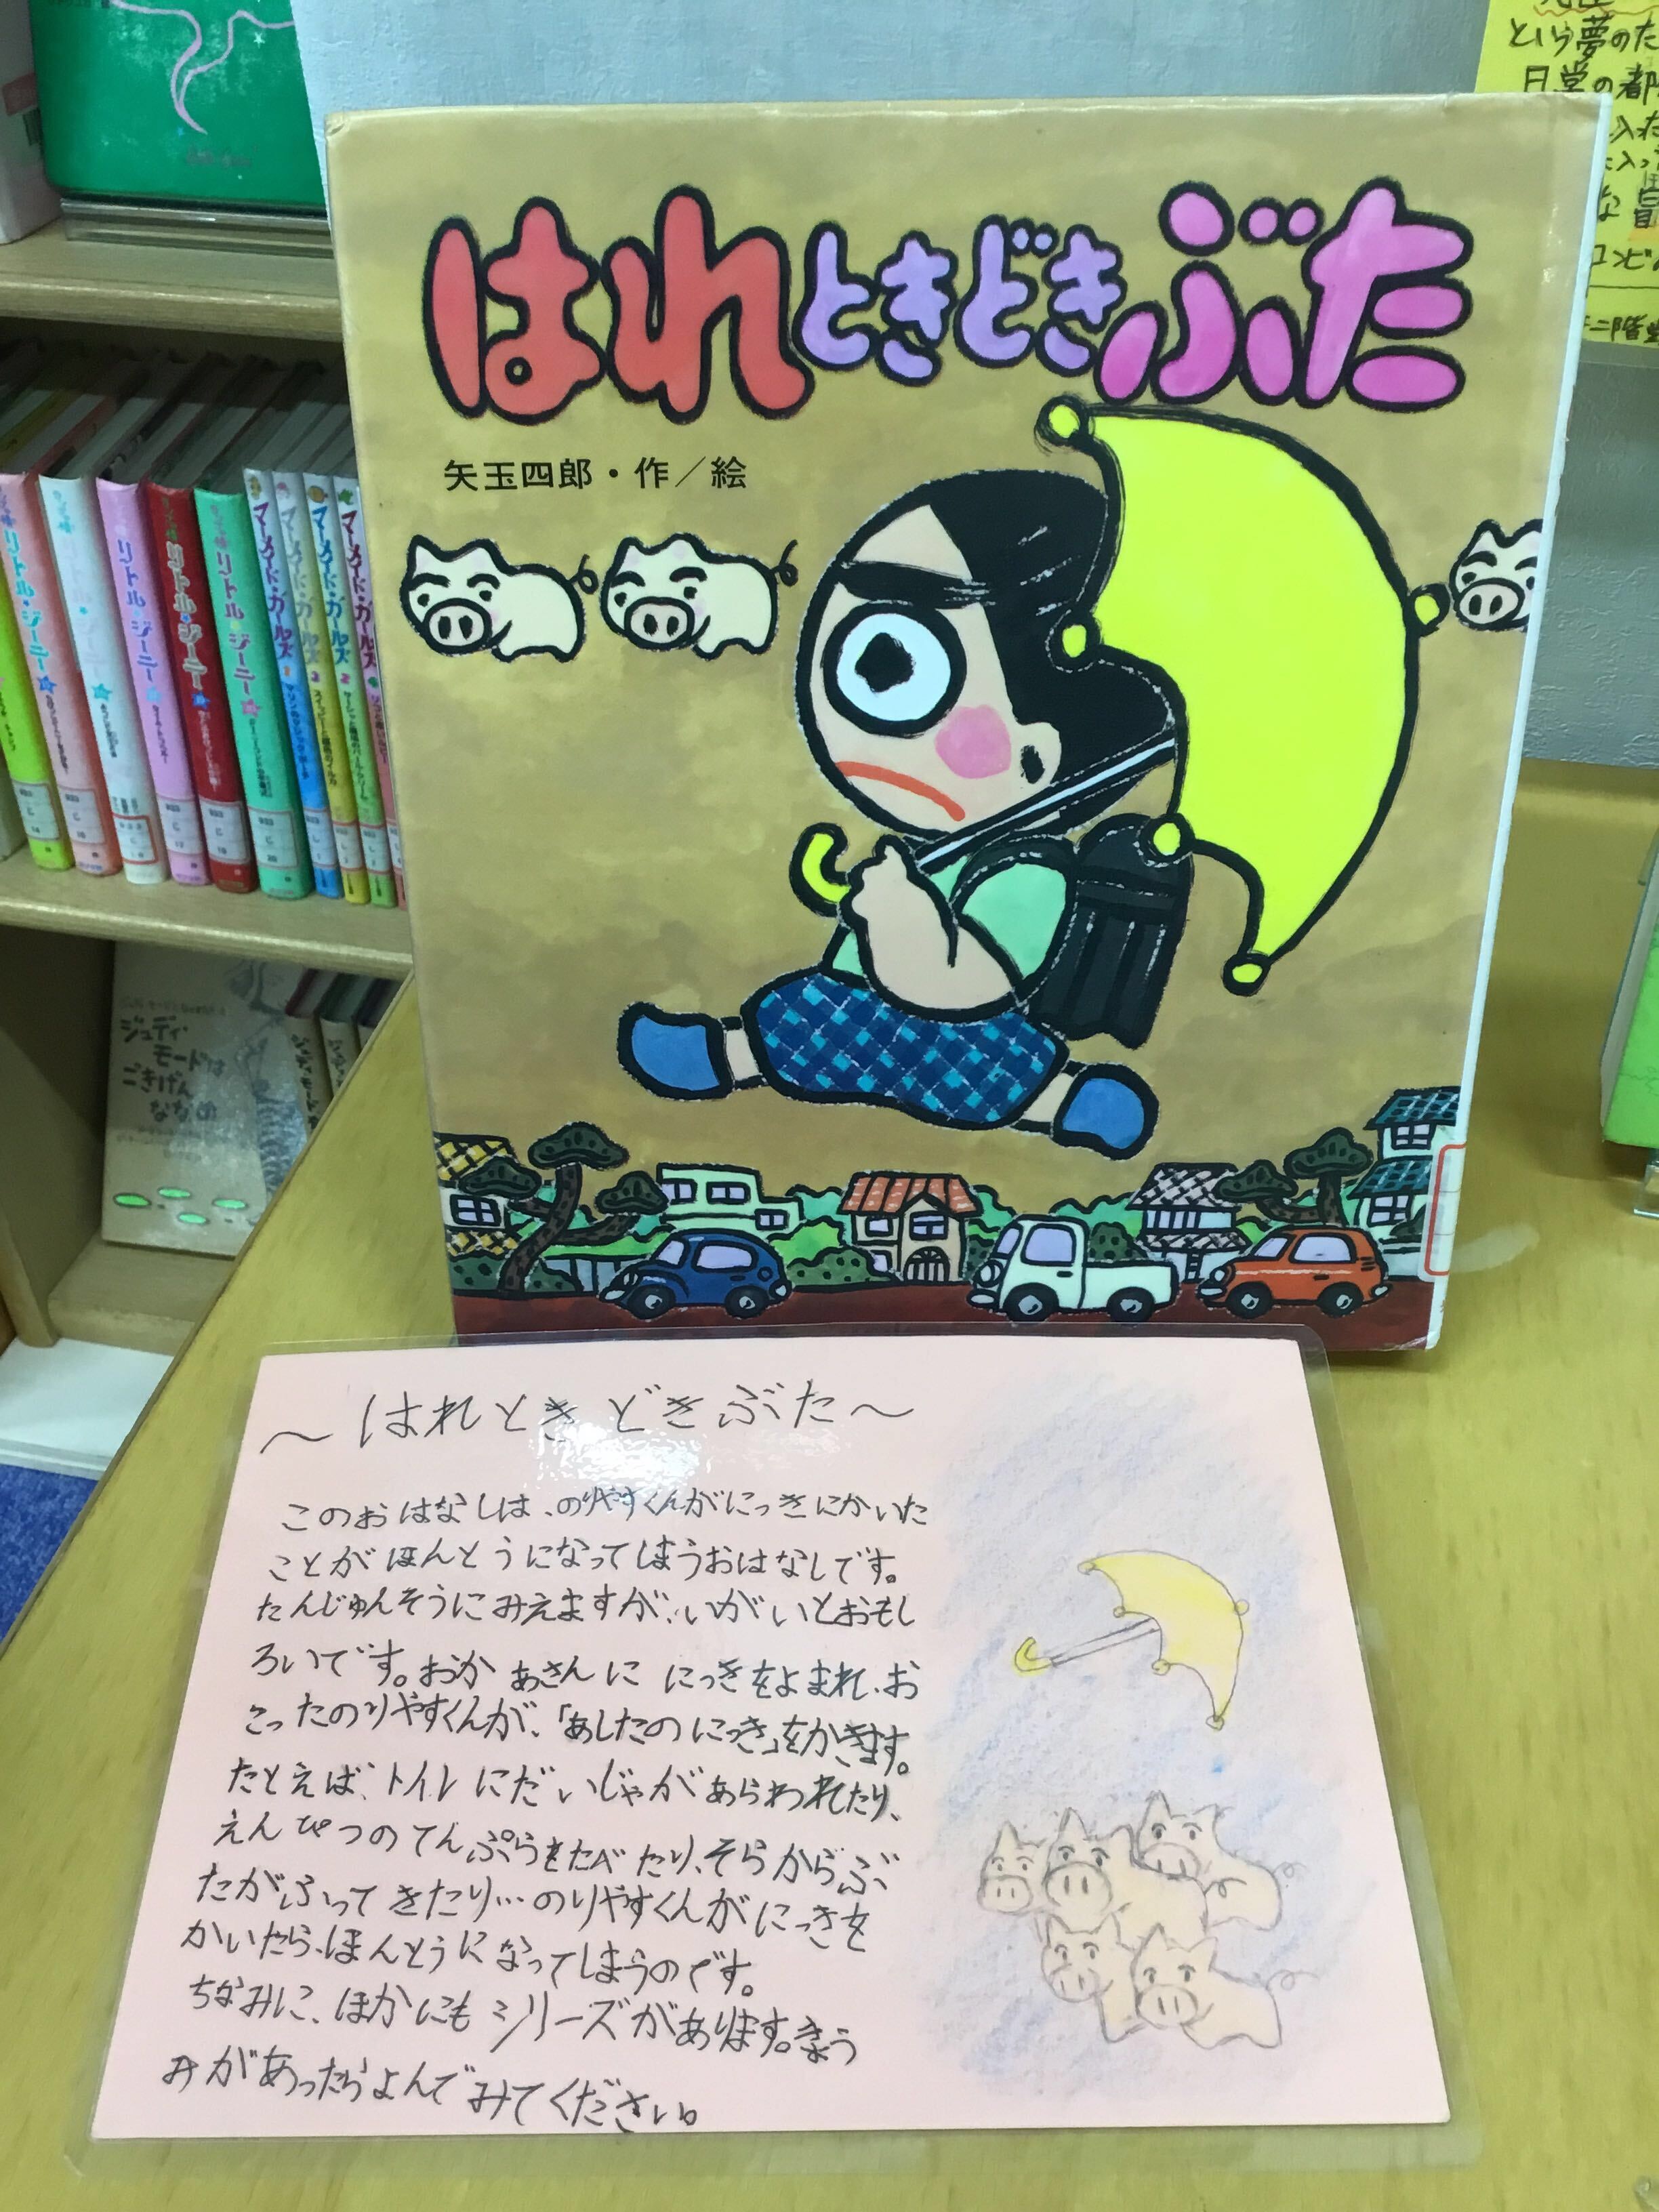 はれときどきぶた
矢玉四郎・作／絵
～はれときどきぶた～
このおはなしは、のりやすくんがにっきにかいた
ことがほんとうになってしまうおはなしです。
たんじゅんそうにみえますが、いがいとおもし
ろいです。おかあさんににっきをよまれ、お
こったのりやすくんが、「あしたのにっき」をかきます。
たとえば、トイレにだいじゃがあらわれたり、
えんぴつのてんぷらをたべたり、そらからぶ
たがふってきたり…のりやすくんがにっきを
かいたら、ほんとうになってしまうのです。
ちなみに、ほかにもシリーズがあります。きょう
みがあったらよんでみてください。
という夢のた
リトル・ジーニー
リトル・ジーニー
リトル・ジーニー
リトル・ジーニー
マーメイド・ガールズ
マーメイド・ガールズ
マーメイド・ガールズ
マーメイド・ガールズ
ジュディ・
モードは
ごきげん
ななめ